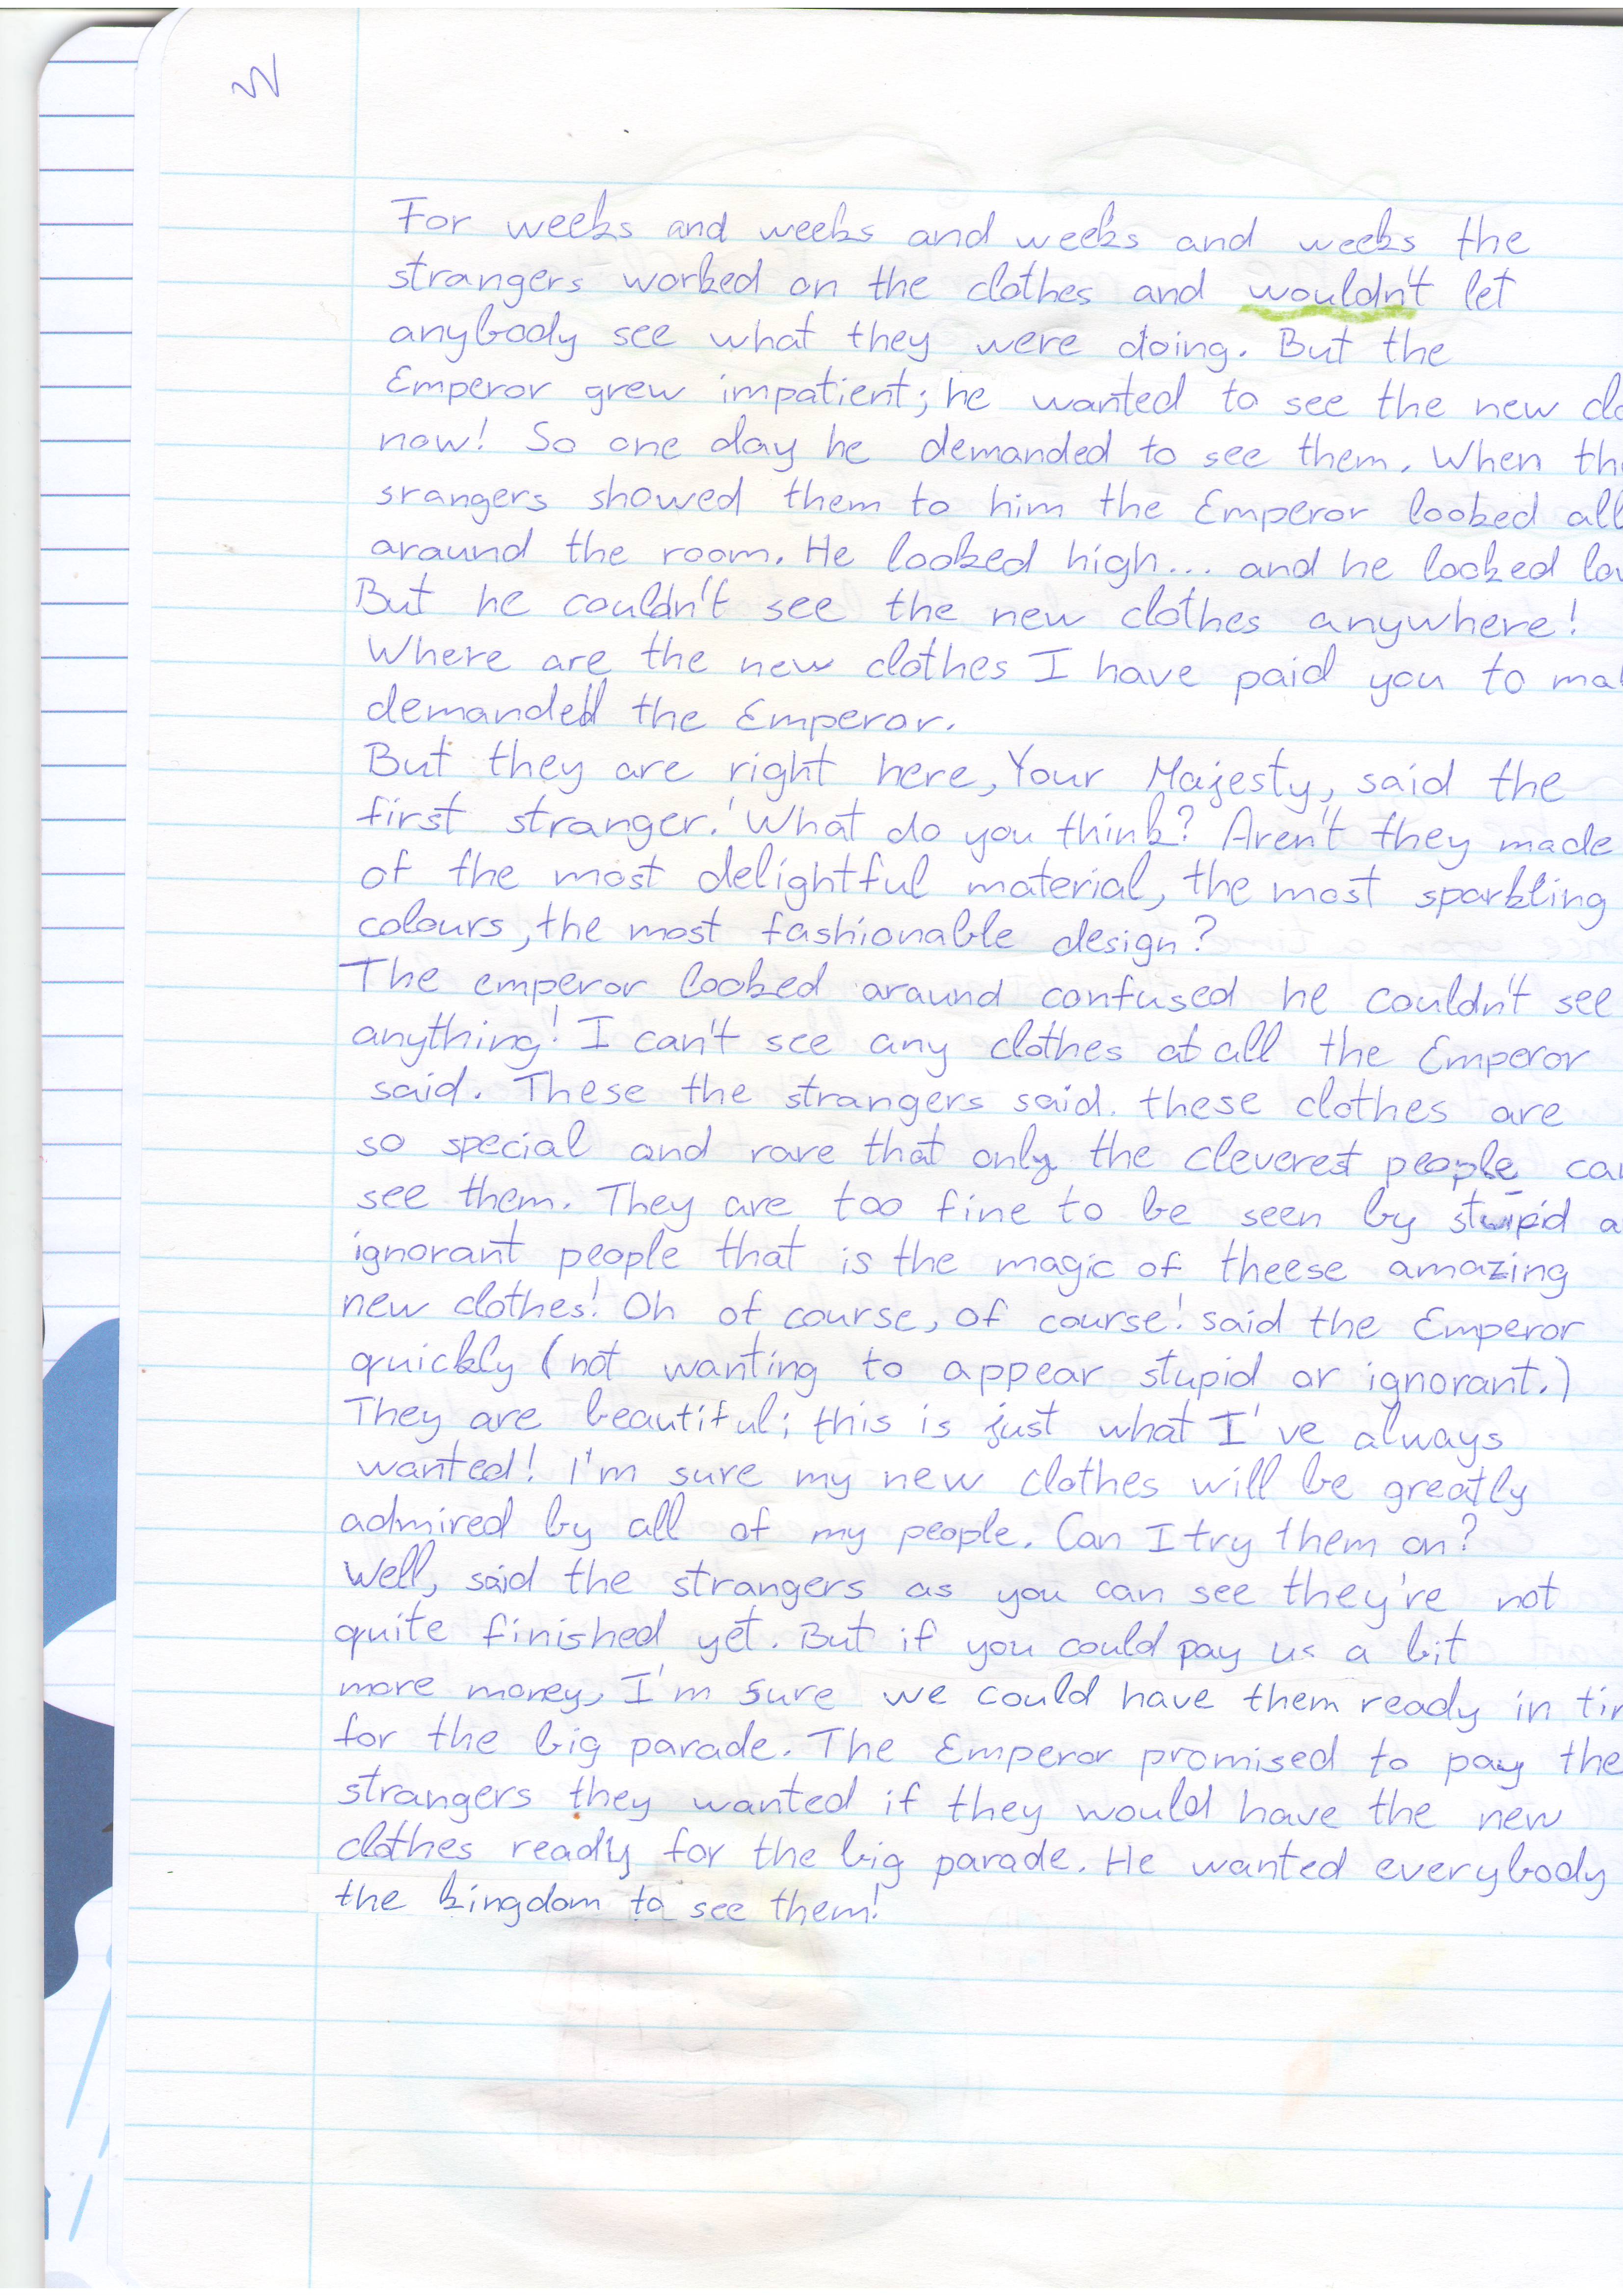 For weeks and weeks and weeks and weeks the
strangers worked on the clothes and wouldn't let
anybody see what they were doing. But the
Emperor grew impatient; he wanted to see the new clo
now! So one day he demanded to see them. When the
srangers showed them to him the Emperor looked all
around the room. He looked high... and he looked lo
But he couldn't see the new clothes anywhere!
Where are the new clothes I have paid you to ma
demanded the Emperor.
But they are right here, Your Majesty, said the
first stranger. 'What do you think? Aren't they made
of the most delightful material, the most sparkling
colours, the most fashionable design?
The emperor looked around confused he couldn't see
anything! I can't see any clothes at all the Emperor
said. These the strangers said. these clothes are
so special and rare that only the cleverest people can
see them. They are too fine to be seen by stupid a
ignorant people that is the magic of theese amazing
new clothes! Oh of course, of course! said the Emperor
quickly (not wanting to appear stupid or ignorant.)
They are beautiful; this is just what I've always
wanted! I'm sure my new clothes will be greatly
admired by all of my people. Can I try them on?
Well, said the strangers as you can see they're not
quite finished yet. But if you could pay us a bit
more money, I'm sure we could have them ready in ti
for the big parade. The Emperor promised to pay the
strangers they wanted if they would have the new
clothes ready for the big parade. He wanted everybody
the kingdom to see them!